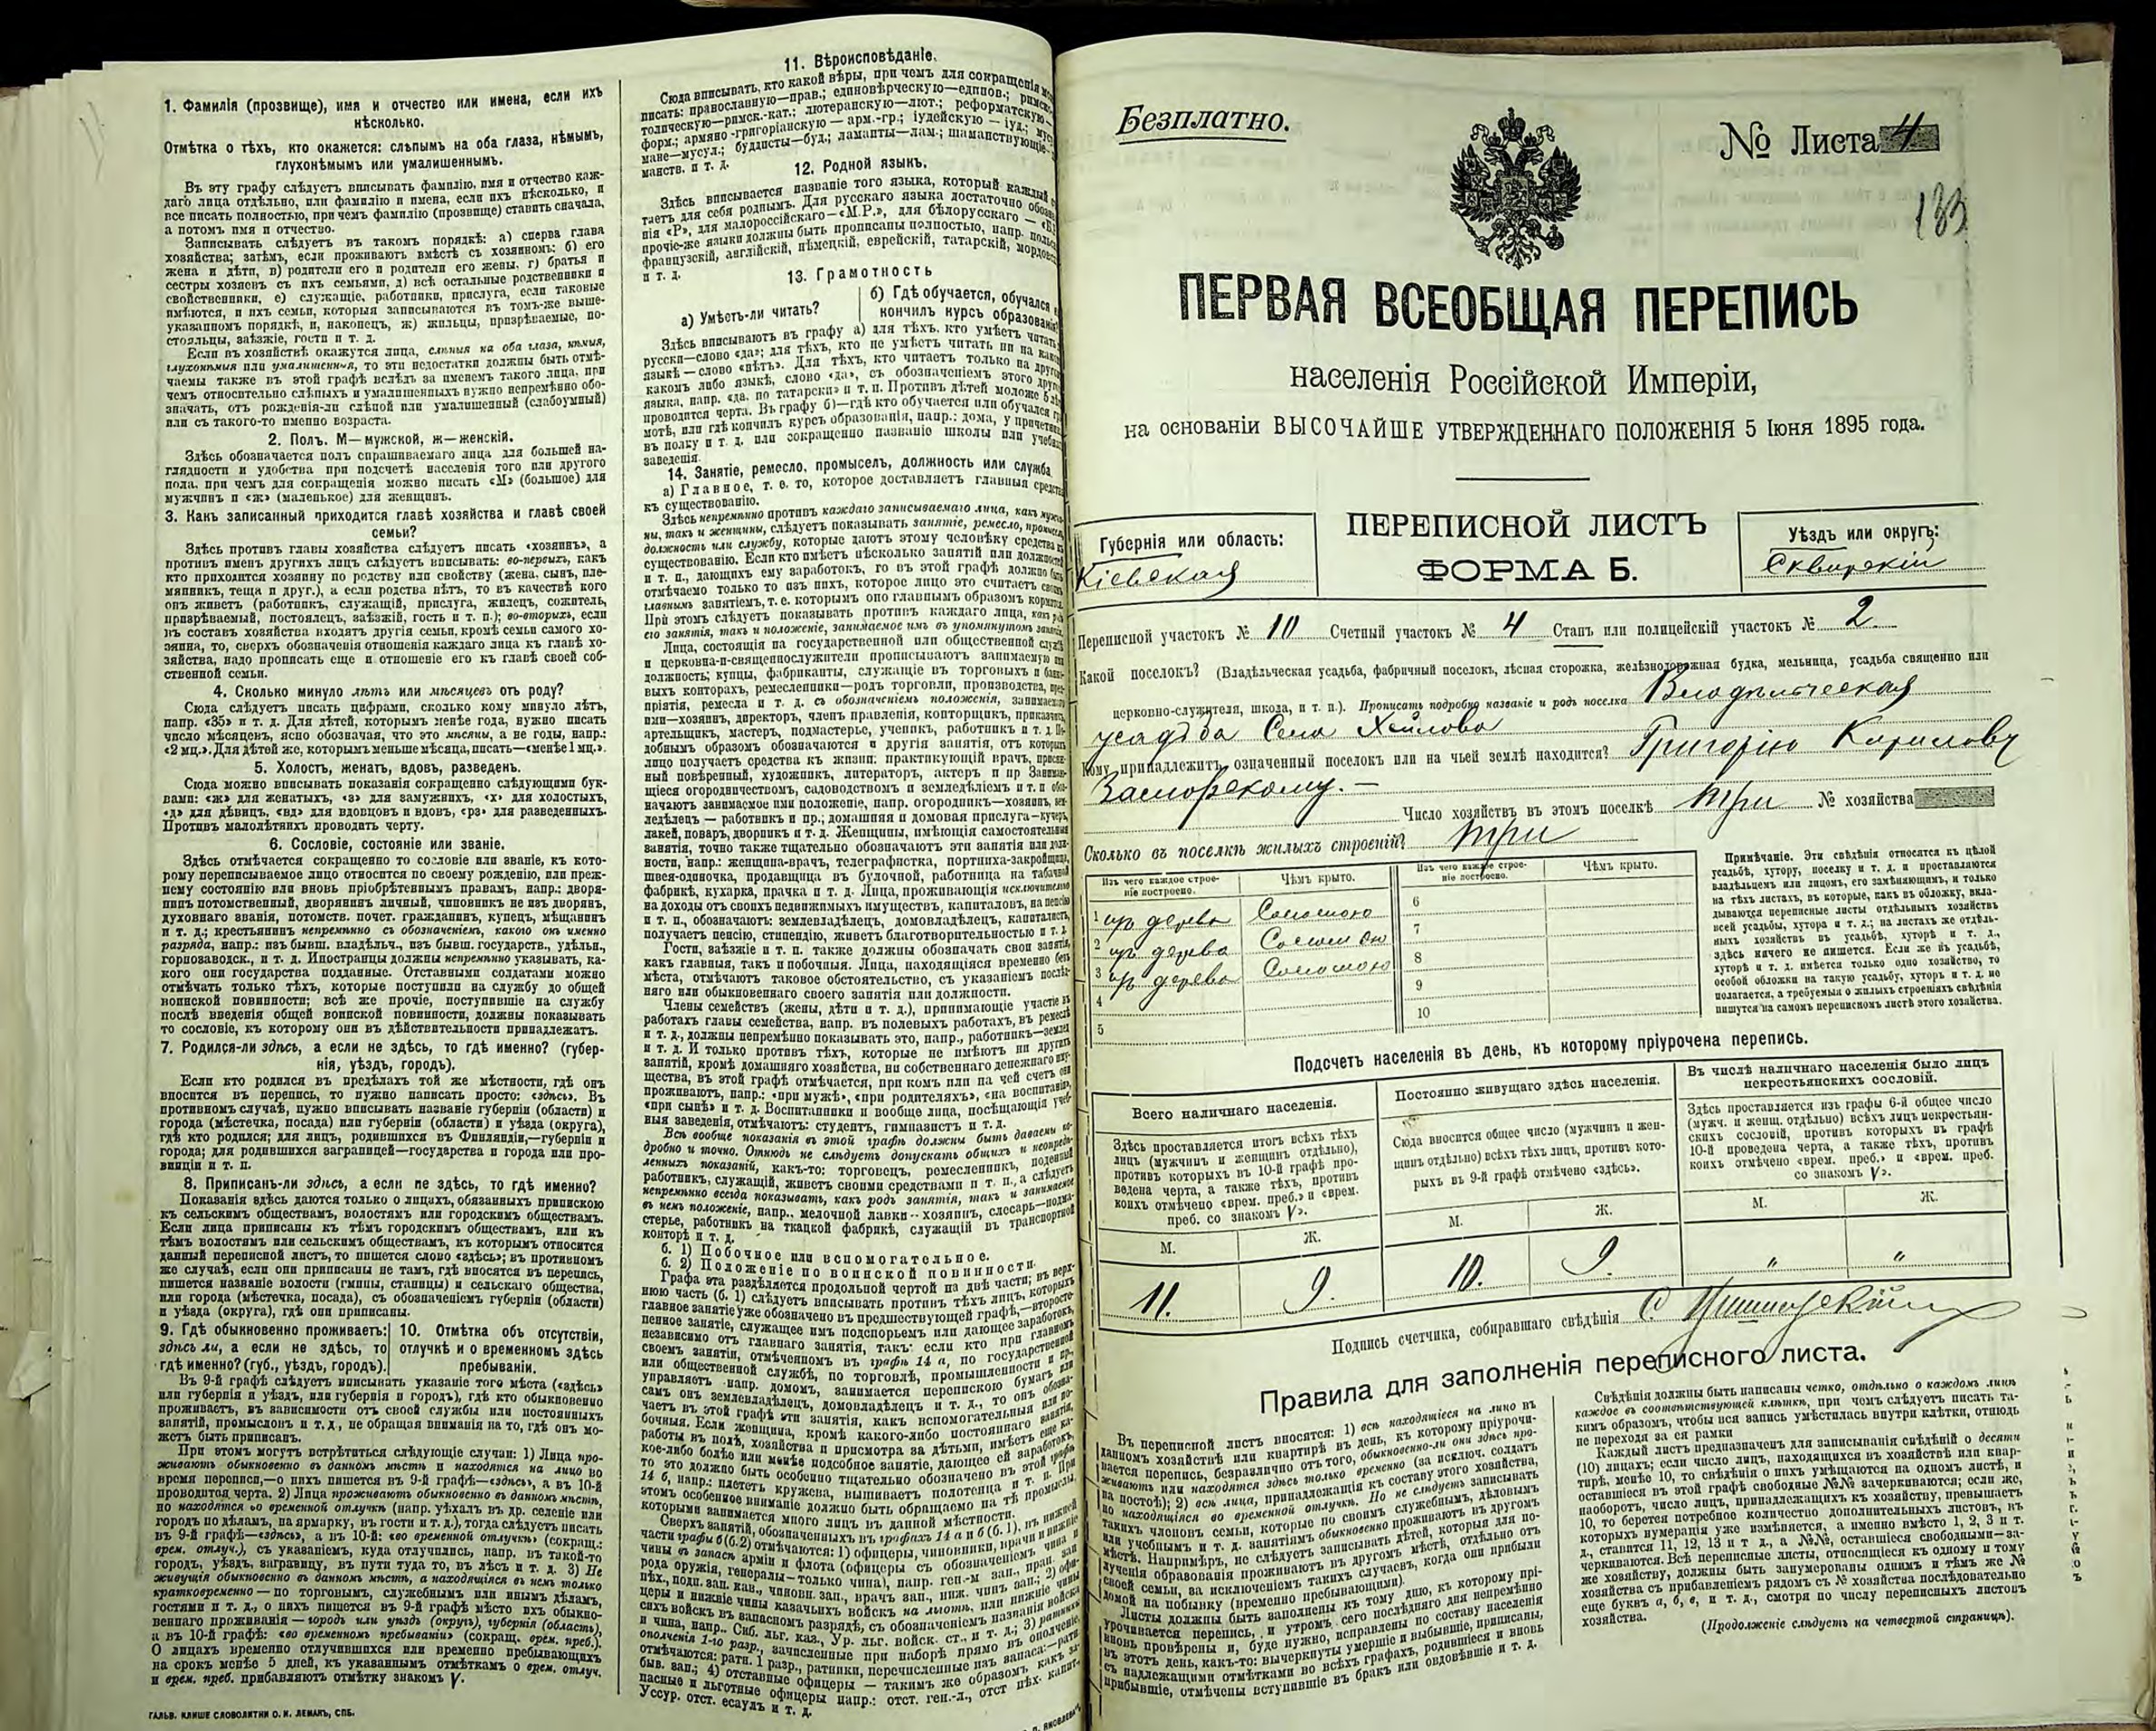 1. Фамилія (прозвище), имя и отчество или имена, если ихъ
нѣсколько.
Отмѣтка о тѣхъ, кто окажется: слѣпымъ на оба глаза, нѣмымъ,
глухонѣмымъ или умалишеннымъ.
Въ эту графу слѣдуетъ вписывать фамилію, имя и отчество каж-
даго лица отдѣльно, или фамилію и имена, если ихъ нѣсколько, и
все писать полностью, при чемъ фамилію (прозвище) ставить сначала,
а потомъ имя и отчество.
Записывать слѣдуетъ въ такомъ порядкѣ: а) сперва глава
хозяйства; затѣмъ, если проживаютъ вмѣстѣ съ хозяиномъ: б) его
жена и дѣти, в) родители его и родители его жены, г) братья и
сестры хозяевъ съ ихъ семьями, д) всѣ остальные родственники и
свойственники, е) служащіе, работники, прислуга, если таковые
имѣются, и ихъ семьи, которыя записываются въ томъ-же выше-
указанномъ порядкѣ, и, наконецъ, ж) жильцы, призрѣваемые, по-
стояльцы, заѣзжіе, гости и т. д.
Если въ хозяйствѣ окажутся лица, слѣпыя на оба глаза, нѣмыя,
глухонѣмыя или умалишенныя, то эти недостатки должны быть отмѣ-
чаемы также въ этой графѣ вслѣдъ за именемъ такого лица, при
чемъ относительно слѣпыхъ и умалишенныхъ нужно непремѣнно обо-
значать, отъ рожденія-ли слѣпой или умалишенный (слабоумный)
или съ такого-то именно возраста.
2. Полъ. М—мужской, ж—женскій.
Здѣсь обозначается полъ спрашиваемаго лица для большей на-
глядности и удобства при подсчетѣ населенія того или другого
пола, при чемъ для сокращенія можно писать «М» (большое) для
мужчинъ и «ж» (маленькое) для женщинъ.
3. Какъ записанный приходится главѣ хозяйства и главѣ своей
семьи?
Здѣсь противъ главы хозяйства слѣдуетъ писать «хозяинъ», а
противъ именъ другихъ лицъ слѣдуетъ вписывать: во-первыхъ, какъ
кто приходится хозяину по родству или свойству (жена, сынъ, пле-
мянникъ, теща и друг.), а если родства нѣтъ, то въ качествѣ кого
онъ живетъ (работникъ, служащій, прислуга, жилецъ, сожитель,
призрѣваемый, постоялецъ, заѣзжій, гость и т. п.); во-вторыхъ, если
въ составъ хозяйства входятъ другія семьи, кромѣ семьи самого хо-
зяина, то, сверхъ обозначенія отношенія каждаго лица къ главѣ хо-
зяйства, надо прописать еще и отношеніе его къ главѣ своей соб-
ственной семьи.
4. Сколько минуло лѣтъ или мѣсяцевъ отъ роду?
Сюда слѣдуетъ писать цифрами, сколько кому минуло лѣтъ,
напр. «35» и т. д. Для дѣтей, которымъ менѣе года, нужно писать
число мѣсяцевъ, ясно обозначая, что это мѣсяцы, а не годы, напр.:
«2 мц.». Для дѣтей же, которымъ меньше мѣсяца, писать—«менѣе 1 мц.».
5. Холостъ, женатъ, вдовъ, разведенъ.
Сюда можно вписывать показанія сокращенно слѣдующими бук-
вами: «ж» для женатыхъ, «з» для замужнихъ, «х» для холостыхъ,
«д» для дѣвицъ, «вд» для вдовцовъ и вдовъ, «рз» для разведенныхъ.
Противъ малолѣтнихъ проводить черту.
6. Сословіе, состояніе или званіе.
Здѣсь отмѣчается сокращенно то сословіе или званіе, къ кото-
рому переписываемое лицо относится по своему рожденію, или преж-
нему состоянію или вновь пріобрѣтеннымъ правамъ, напр.: дворя-
нинъ потомственный, дворянинъ личный, чиновникъ не изъ дворянъ,
духовнаго званія, потомств. почет. гражданинъ, купецъ, мѣщанинъ
и т. д.; крестьянинъ непремѣнно съ обозначеніемъ, какого онъ именно
разряда, напр.: изъ бывш. владѣльч., изъ бывш. государств., удѣльн.,
горнозаводск., и т. д. Иностранцы должны непремѣнно указывать, ка-
кого они государства подданные. Отставными солдатами можно
отмѣчать только тѣхъ, которые поступили на службу до общей
воинской повинности; всѣ же прочіе, поступившіе на службу
послѣ введенія общей воинской повинности, должны показывать
то сословіе, къ которому они въ дѣйствительности принадлежатъ.
7. Родился-ли здѣсь, а если не здѣсь, то гдѣ именно? (губер-
нія, уѣздъ, городъ).
Если кто родился въ предѣлахъ той же мѣстности, гдѣ онъ
вносится въ перепись, то нужно написать просто: «здѣсь». Въ
противномъ случаѣ, нужно вписывать названіе губерніи (области) и
города (мѣстечка, посада) или губерніи (области) и уѣзда (округа),
гдѣ кто родился; для лицъ, родившихся въ Финляндіи,—губерніи и
города; для родившихся заграницей—государства и города или про-
винціи и т. п.
8. Приписанъ-ли здѣсь, а если не здѣсь, то гдѣ именно?
Показанія здѣсь даются только о лицахъ, обязанныхъ припискою
къ сельскимъ обществамъ, волостямъ или городскимъ обществамъ.
Если лица приписаны къ тѣмъ городскимъ обществамъ, или къ
тѣмъ волостямъ или сельскимъ обществамъ, къ которымъ относится
данный переписной листъ, то пишется слово «здѣсь»; въ противномъ
же случаѣ, если они приписаны не тамъ, гдѣ вносятся въ перепись,
пишется названіе волости (гмины, станицы) и сельскаго общества,
или города (мѣстечка, посада), съ обозначеніемъ губерніи (области)
и уѣзда (округа), гдѣ они приписаны.
9. Гдѣ обыкновенно проживаетъ:
здѣсь ли, а если не здѣсь, то
гдѣ именно? (губ., уѣздъ, городъ).
10. Отмѣтка объ отсутствіи,
отлучкѣ и о временномъ здѣсь
пребываніи.
Въ 9-й графѣ слѣдуетъ вписывать указаніе того мѣста («здѣсь»
или губернія и уѣздъ, или губернія и городъ), гдѣ кто обыкновенно
проживаетъ, въ зависимости отъ своей службы или постоянныхъ
занятій, промысловъ и т. д., не обращая вниманія на то, гдѣ онъ мо-
жетъ быть приписанъ.
При этомъ могутъ встрѣтиться слѣдующіе случаи: 1) Лица про-
живаютъ обыкновенно въ данномъ мѣстѣ и находятся на лицо во
время переписи,—о нихъ пишется въ 9-й графѣ—«здѣсь», а въ 10-й
проводится черта. 2) Лица проживаютъ обыкновенно въ данномъ мѣстѣ,
но находятся во временной отлучкѣ (напр. уѣхалъ въ др. селеніе или
городъ по дѣламъ, на ярмарку, въ гости и т. д.), тогда слѣдуетъ писать
въ 9-й графѣ—«здѣсь», а въ 10-й: «во временной отлучкѣ» (сокращ.:
врем. отлуч.), съ указаніемъ, куда отлучились, напр. въ такой-то
городъ, уѣздъ, заграницу, въ пути туда то, въ лѣсъ и т. д. 3) Не
живущія обыкновенно въ данномъ мѣстѣ, а находящіяся въ немъ только
кратковременно — по торговымъ, служебнымъ или инымъ дѣламъ,
гостями и т. д., о нихъ пишется въ 9-й графѣ мѣсто ихъ обыкно-
веннаго проживанія — городъ или уѣздъ (округъ), губернія (область),
а въ 10-й графѣ: «во временномъ пребываніи» (сокращ. врем. преб.).
О лицахъ временно отлучившихся или временно пребывающихъ
на срокъ менѣе 5 дней, къ указаннымъ отмѣткамъ о врем. отлуч.
и врем. преб. прибавляютъ отмѣтку знакомъ V.
ГАЛЬВ. КЛИШЕ СЛОВОЛИТНИ О. И. ЛЕМАНЪ, СПБ.
11. Вѣроисповѣданіе.
Сюда вписывать, кто какой вѣры, при чемъ для сокращенія
писать: православную—прав.; единовѣрческую—единов.;
толическую—римск.-кат.; лютеранскую—лют.; реформатскую—
форм.; армяно-григоріанскую — арм.-гр.; іудейскую — іуд.;
мане—мусул.; буддисты—буд.; ламаиты—лам.; шаманствующіе—
манств. и т. д.
12. Родной языкъ.
Здѣсь вписывается названіе того языка, который каждый
таетъ для себя роднымъ. Для русскаго языка достаточно
нія «Р», для малороссійскаго—«М.Р.», для бѣлорусскаго —
прочіе-же языки должны быть прописаны полностью, напр.
французскій, англійскій, нѣмецкій, еврейскій, татарскій,
и т. д.
13. Грамотность
а) Умѣетъ-ли читать?
б) Гдѣ обучается, обучался
кончилъ курсъ образованія?
Здѣсь вписываютъ въ графу а) для тѣхъ, кто умѣетъ читать
русски—слово «да»; для тѣхъ, кто не умѣетъ читать ни на
языкѣ — слово «нѣтъ». Для тѣхъ, кто читаетъ только на
какомъ либо языкѣ, слово «да», съ обозначеніемъ этого
языка, напр. «да, по татарски» и т. п. Противъ дѣтей моложе 5
проводится черта. Въ графу б)—гдѣ кто обучается или обучался
мотѣ, или гдѣ кончилъ курсъ образованія, напр.: дома, у
въ полку и т. д. или сокращенно названіе школы или
заведенія.
14. Занятіе, ремесло, промыселъ, должность или служба
а) Главное, т. е. то, которое доставляетъ главныя средства
къ существованію.
Здѣсь непремѣнно противъ каждаго записываемаго лица, какъ
ны, такъ и женщины, слѣдуетъ показывать занятіе, ремесло,
должность или службу, которые даютъ этому человѣку средства къ
существованію. Если кто имѣетъ нѣсколько занятій или должностей
и т. п., дающихъ ему заработокъ, то въ этой графѣ должно быть
отмѣчаемо только то изъ нихъ, которое лицо это считаетъ своимъ
главнымъ занятіемъ, т. е. которымъ оно главнымъ образомъ кормится.
При этомъ слѣдуетъ показывать противъ каждаго лица, какъ родъ
его занятія, такъ и положеніе, занимаемое имъ въ упомянутомъ занятіи.
Лица, состоящія на государственной или общественной службѣ
и церковно-и-священнослужители прописываютъ занимаемую ими
должность; купцы, фабриканты, служащіе въ торговыхъ и банко-
выхъ конторахъ, ремесленники—родъ торговли, производства,
пріятія, ремесла и т. д. съ обозначеніемъ положенія, занимаемаго
ими—хозяинъ, директоръ, членъ правленія, конторщикъ, приказчикъ,
артельщикъ, мастеръ, подмастерье, ученикъ, работникъ и т. д. По-
добнымъ образомъ обозначаются и другія занятія, отъ которыхъ
лицо получаетъ средства къ жизни: практикующій врачъ, присяж-
ный повѣренный, художникъ, литераторъ, актеръ и пр. Занимаю-
щіеся огородничествомъ, садоводствомъ и земледѣліемъ и т. п. обоз-
начаютъ занимаемое ими положеніе, напр. огородникъ—хозяинъ, зем-
ледѣлецъ — работникъ и пр.; домашняя и домовая прислуга—кучеръ,
лакей, поваръ, дворникъ и т. д. Женщины, имѣющія самостоятельныя
занятія, точно также тщательно обозначаютъ эти занятія или долж-
ности, напр.: женщина-врачъ, телеграфистка, портниха-закройщица,
швея-одиночка, продавщица въ булочной, работница на табачной
фабрикѣ, кухарка, прачка и т. д. Лица, проживающія исключительно
на доходы отъ своихъ недвижимыхъ имуществъ, капиталовъ, на пенсію
и т. п., обозначаютъ: землевладѣлецъ, домовладѣлецъ, капиталистъ,
получаетъ пенсію, стипендію, живетъ благотворительностью и т. д.
Гости, заѣзжіе и т. п. также должны обозначать свои занятія,
какъ главныя, такъ и побочныя. Лица, находящіяся временно безъ
мѣста, отмѣчаютъ таковое обстоятельство, съ указаніемъ послѣд-
няго или обыкновеннаго своего занятія или должности.
Члены семействъ (жены, дѣти и т. д.), принимающіе участіе въ
работахъ главы семейства, напр. въ полевыхъ работахъ, въ ремеслѣ
и т. д., должны непремѣнно показывать это, напр., работникъ—
и т. д. И только противъ тѣхъ, которые не имѣютъ ни другихъ
занятій, кромѣ домашняго хозяйства, ни собственнаго денежнаго иму-
щества, въ этой графѣ отмѣчается, при комъ или на чей счетъ они
проживаютъ, напр.: «при мужѣ», «при родителяхъ», «на воспитаніи»,
«при сынѣ» и т. д. Воспитанники и вообще лица, посѣщающія учеб-
ныя заведенія, отмѣчаютъ: студентъ, гимназистъ и т. д.
Всѣ вообще показанія въ этой графѣ должны быть даваемы по-
дробно и точно. Отнюдь не слѣдуетъ допускать общихъ и неопредѣ-
ленныхъ показаній, какъ-то: торговецъ, ремесленникъ, поденный
работникъ, служащій, живетъ своими средствами и т. п., а слѣдуетъ
непремѣнно всегда показывать, какъ родъ занятія, такъ и занимаемое
въ немъ положеніе, напр., мелочной лавки—хозяинъ, слесарь—подма-
стерье, работникъ на ткацкой фабрикѣ, служащій въ транспортной
конторѣ и т. д.
б. 1) Побочное или вспомогательное.
б. 2) Положеніе по воинской повинности.
Графа эта раздѣляется продольной чертой на двѣ части; въ верх-
нюю часть (б. 1) слѣдуетъ вписывать противъ тѣхъ лицъ, которыхъ
главное занятіе уже обозначено въ предшествующей графѣ,—второсте-
пенное занятіе, служащее имъ подспорьемъ или дающее заработокъ,
независимо отъ главнаго занятія, такъ: если кто при главномъ
своемъ занятіи, отмѣченномъ въ графѣ 14 а, по государственной
или общественной службѣ, по торговлѣ, промышленности и пр.,
управляетъ напр. домомъ, занимается перепискою бумагъ или
самъ онъ землевладѣлецъ, домовладѣлецъ и т. д., то онъ обозна-
чаетъ въ этой графѣ эти занятія, какъ вспомогательныя или по-
бочныя. Если женщина, кромѣ какого-либо постояннаго занятія,
работы въ полѣ, хозяйства и присмотра за дѣтьми, имѣетъ еще ка-
кое-либо болѣе или менѣе подсобное занятіе, дающее ей заработокъ,
то это должно быть особенно тщательно обозначено въ этой графѣ
14 б, напр.: плететъ кружева, вышиваетъ полотенца и т. п. При
этомъ особенное вниманіе должно быть обращаемо на тѣ промыслы,
которыми занимается много лицъ въ данной мѣстности.
Сверхъ занятій, обозначенныхъ въ графахъ 14 а и б (б. 1), въ нижней
части графы б (б. 2) отмѣчаются: 1) офицеры, чиновники, врачи и нижніе
чины въ запасѣ арміи и флота (офицеры съ обозначеніемъ чина и
рода оружія, генералы—только чина), напр. ген.-м зап., прап. зап.
пѣх., подп. зап. кав., чиновн. зап., врачъ зап., ниж. чинъ зап.; 2) офи-
церы и нижніе чины казачьихъ войскъ на льготѣ, или нижніе чины
сихъ войскъ въ запасномъ разрядѣ, съ обозначеніемъ названія войска
и чина, напр., Сиб. льг. каз., Ур. льг. войск. ст., и т. д.; 3) ратники
ополченія 1-го разр., зачисленные при наборѣ прямо въ ополченіе,
отмѣчаются: ратн. 1 разр., ратники, перечисленные изъ запаса:—ратн.
быв. зап.; 4) отставные офицеры — такимъ же образомъ какъ за-
пасные и льготные офицеры напр.: отст. ген.-л., отст пѣх. капит.
Уссур. отст. есаулъ и т. д.
Безплатно.
№ Листа 4
133
ПЕРВАЯ ВСЕОБЩАЯ ПЕРЕПИСЬ
населенія Россійской Имперіи,
на основаніи ВЫСОЧАЙШЕ УТВЕРЖДЕННАГО ПОЛОЖЕНІЯ 5 Іюня 1895 года.
Губернія или область:
Кіевская
ПЕРЕПИСНОЙ ЛИСТЪ
ФОРМА Б.
Уѣздъ или округъ:
Сквирскій
Переписной участокъ № 10 Счетный участокъ № 4 Станъ или полицейскій участокъ № 2
Какой поселокъ? (Владѣльческая усадьба, фабричный поселокъ, лѣсная сторожка, желѣзнодорожная будка, мельница, усадьба священно или
церковно-служителя, школа, и т. п.). Прописать подробно названіе и родъ поселка Владѣльческая
усадьба Села
Кому принадлежитъ означенный поселокъ или на чьей землѣ находится? Григорію
Заморскому. —
Число хозяйствъ въ этомъ поселкѣ три № хозяйства
Сколько въ поселкѣ жилыхъ строеній? три
Изъ чего каждое строе-
ніе построено.
Чѣмъ крыто.
Изъ чего каждое строе-
ніе построено.
Чѣмъ крыто.
1 изъ дерева Соломою 6
2 изъ дерева Соломою 7
3 изъ дерева Соломою 8
4 9
5 10
Примѣчаніе. Эти свѣдѣнія относятся къ цѣлой
усадьбѣ, хутору, поселку и т. д. и проставляются
владѣльцемъ или лицомъ, его замѣняющимъ, и только
на тѣхъ листахъ, въ которые, какъ въ обложку, вкла-
дываются переписные листы отдѣльныхъ хозяйствъ
всей усадьбы, хутора и т. д.; на листахъ же отдѣль-
ныхъ хозяйствъ въ усадьбѣ, хуторѣ и т. д.,
здѣсь ничего не пишется. Если же въ усадьбѣ,
хуторѣ и т. д. имѣется только одно хозяйство, то
особой обложки на такую усадьбу, хуторъ и т. д. не
полагается, а требуемыя о жилыхъ строеніяхъ свѣдѣнія
пишутся на самомъ переписномъ листѣ этого хозяйства.
Подсчетъ населенія въ день, къ которому пріурочена перепись.
Всего наличнаго населенія.
Здѣсь проставляется итогъ всѣхъ тѣхъ
лицъ (мужчинъ и женщинъ отдѣльно),
противъ которыхъ въ 10-й графѣ про-
ведена черта, а также тѣхъ, противъ
коихъ отмѣчено «врем. преб.» и «врем.
преб. со знакомъ V».
М. Ж.
11. 9.
Постоянно живущаго здѣсь населенія.
Сюда вносится общее число (мужчинъ и жен-
щинъ отдѣльно) всѣхъ тѣхъ лицъ, противъ кото-
рыхъ въ 9-й графѣ отмѣчено «здѣсь».
М. Ж.
10. 9.
Въ числѣ наличнаго населенія было лицъ
некрестьянскихъ сословій.
Здѣсь проставляется изъ графы 6-й общее число
(мужч. и женщ. отдѣльно) всѣхъ лицъ некрестьян-
скихъ сословій, противъ которыхъ въ графѣ
10-й проведена черта, а также тѣхъ, противъ
коихъ отмѣчено «врем. преб.» и «врем. преб.
со знакомъ V».
М. Ж.
" "
Подпись счетчика, собиравшаго свѣдѣнія
Правила для заполненія переписного листа.
Въ переписной листъ вносятся: 1) всѣ находящіеся на лицо въ
данномъ хозяйствѣ или квартирѣ въ день, къ которому пріурочи-
вается перепись, безразлично отъ того, обыкновенно-ли они здѣсь про-
живаютъ или находятся здѣсь только временно (за исключ. солдатъ
на постоѣ); 2) всѣ лица, принадлежащія къ составу этого хозяйства,
но находящіяся во временной отлучкѣ. Но не слѣдуетъ записывать
такихъ членовъ семьи, которые по своимъ служебнымъ, дѣловымъ
или учебнымъ и т. д. занятіямъ обыкновенно проживаютъ въ другомъ
мѣстѣ. Напримѣръ, не слѣдуетъ записывать дѣтей, которыя для по-
лученія образованія проживаютъ въ другомъ мѣстѣ, отдѣльно отъ
своей семьи, за исключеніемъ такихъ случаевъ, когда они прибыли
домой на побывку (временно пребывающими).
Листы должны быть заполнены къ тому дню, къ которому прі-
урочивается перепись, и утромъ сего послѣдняго дня непремѣнно
вновь провѣрены и, буде нужно, исправлены по составу населенія
въ этотъ день, какъ-то: вычеркнуты умершіе и выбывшіе, приписаны,
съ надлежащими отмѣтками во всѣхъ графахъ, родившіеся и вновь
прибывшіе, отмѣчены вступившіе въ бракъ или овдовѣвшіе и т. д.
Свѣдѣнія должны быть написаны четко, отдѣльно о каждомъ лицѣ
каждое въ соотвѣтствующей клѣткѣ, при чемъ слѣдуетъ писать та-
кимъ образомъ, чтобы вся запись умѣстилась внутри клѣтки, отнюдь
не переходя за ея рамки
Каждый листъ предназначенъ для записыванія свѣдѣній о десяти
(10) лицахъ; если число лицъ, находящихся въ хозяйствѣ или квар-
тирѣ, менѣе 10, то свѣдѣнія о нихъ умѣщаются на одномъ листѣ, и
оставшіеся въ этой графѣ свободные №№ зачеркиваются; если же,
наоборотъ, число лицъ, принадлежащихъ къ хозяйству, превышаетъ
10, то берется потребное количество дополнительныхъ листовъ, въ
которыхъ нумерація уже измѣняется, а именно вмѣсто 1, 2, 3 и т.
д., ставится 11, 12, 13 и т д., а №№, оставшіеся свободными—за-
черкиваются. Всѣ переписные листы, относящіеся къ одному и тому
же хозяйству, должны быть занумерованы однимъ и тѣмъ же №
хозяйства съ прибавленіемъ рядомъ съ № хозяйства послѣдовательно
еще буквъ а, б, в, и т. д., смотря по числу переписныхъ листовъ
хозяйства.
(Продолженіе слѣдуетъ на четвертой страницѣ).